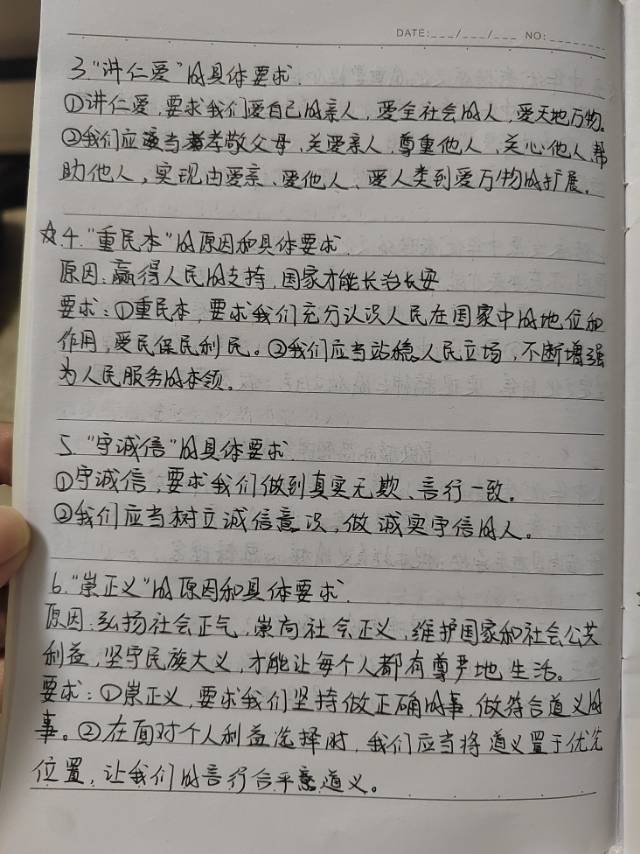 DATE: ___/___/___ NO:
3."讲仁爱"的具体要求.
①讲仁爱,要求我们爱自己的亲人,爱全社会的人,爱天地万物。
②我们应当孝敬父母、关爱亲人、尊重他人、关心他人、帮
助他人,实现由爱亲、爱他人、爱人类到爱万物的扩展。
☆4."重民本"的原因和具体要求.
原因:赢得人民的支持,国家才能长治长安
要求:①重民本,要求我们充分认识人民在国家中的地位和
作用,爱民保民利民。②我们应当站稳人民立场,不断增强
为人民服务的本领。
5."守诚信"的具体要求
①守诚信,要求我们做到真实无欺、言行一致。
②我们应当树立诚信意识,做诚实守信的人。
6."崇正义"的原因和具体要求.
原因:弘扬社会正气,崇尚社会正义,维护国家和社会公共
利益,坚守民族大义,才能让每个人都有尊严地生活。
要求:①崇正义,要求我们坚持做正确的事,做符合道义的
事。②在面对个人利益选择时,我们应当将道义置于优先
位置,让我们的言行合乎道义。